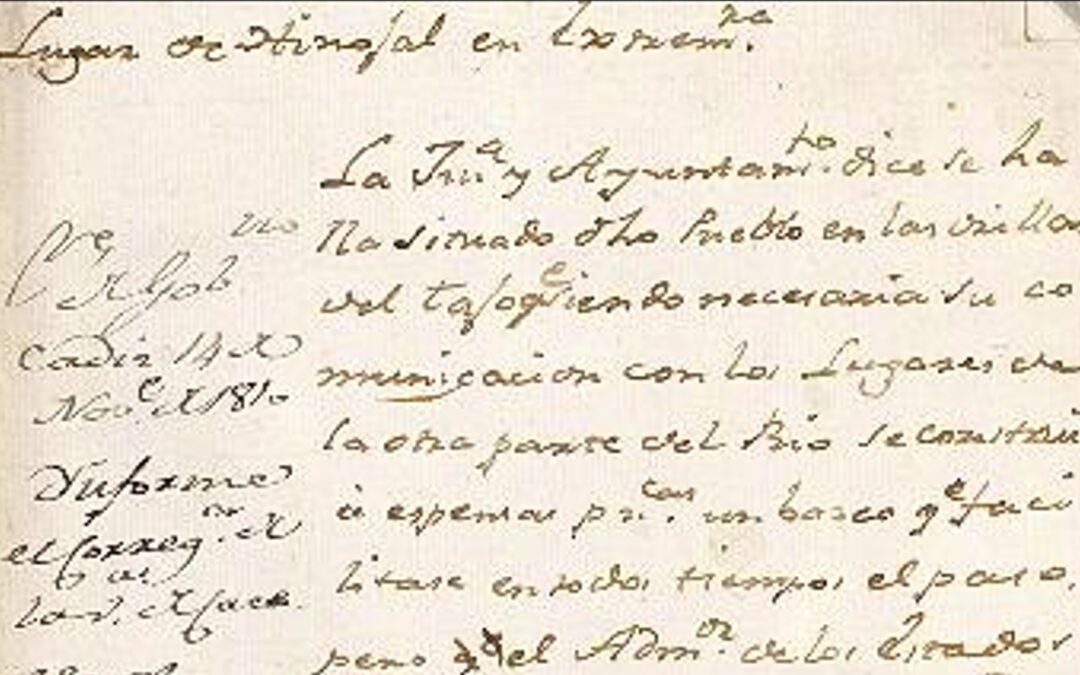 Lugar de Hinojal en Extrem.ra
La Jus.a y Ayuntam.to dice se ha
lla situado dho Pueblo en las orillas
del Tajo q.e siendo necesaria su co
municacion con los Lugares de
la otra parte del Rio se constru
ió espensas pu.cas un barco q.e faci
litase en todos tiempos el paso,
pero el Adm.or de los Estados
Cadiz 14 de
Nov.e de 1810
Informe
el Correg.or de